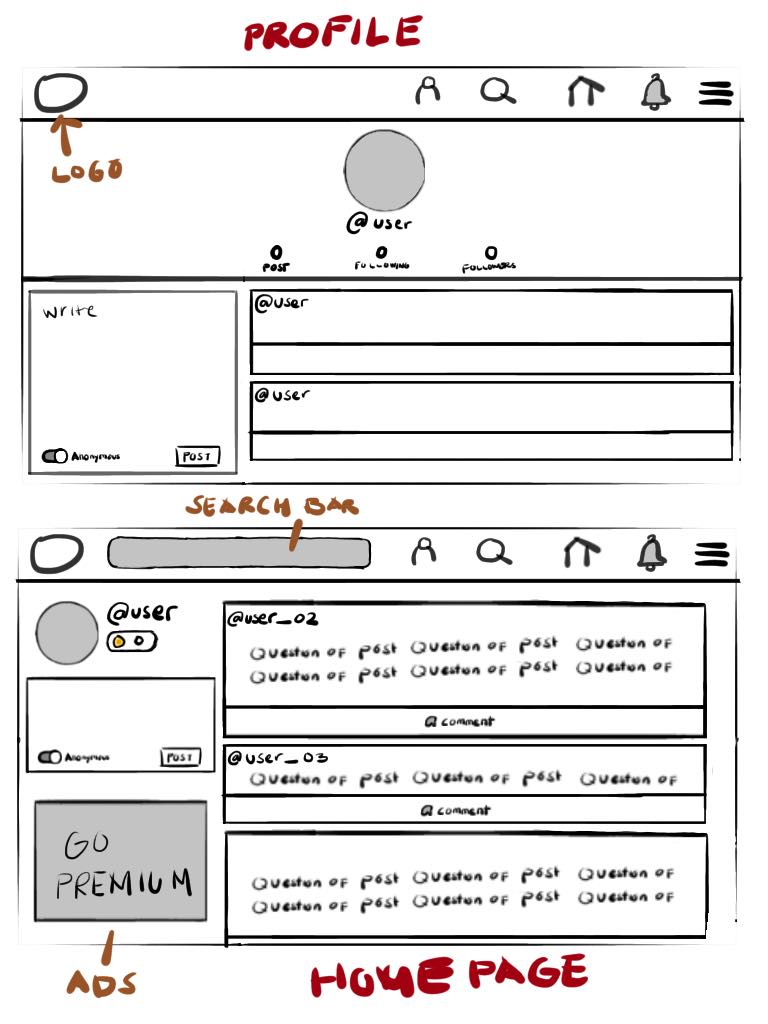 PROFILE
LOGO
@user
0 0 0
POST FOLLOWING FOLLOWERS
write
Anonymous POST
@user
@user
SEARCH BAR
@user
0
Anonymous POST
GO
PREMIUM
ADS
@user_02
Question of post Question of post Question of
Question of post Question of post Question of
comment
@user_03
Question of post Question of post Question of
comment
Question of post Question of post Question of
Question of post Question of post Question of
HOME PAGE